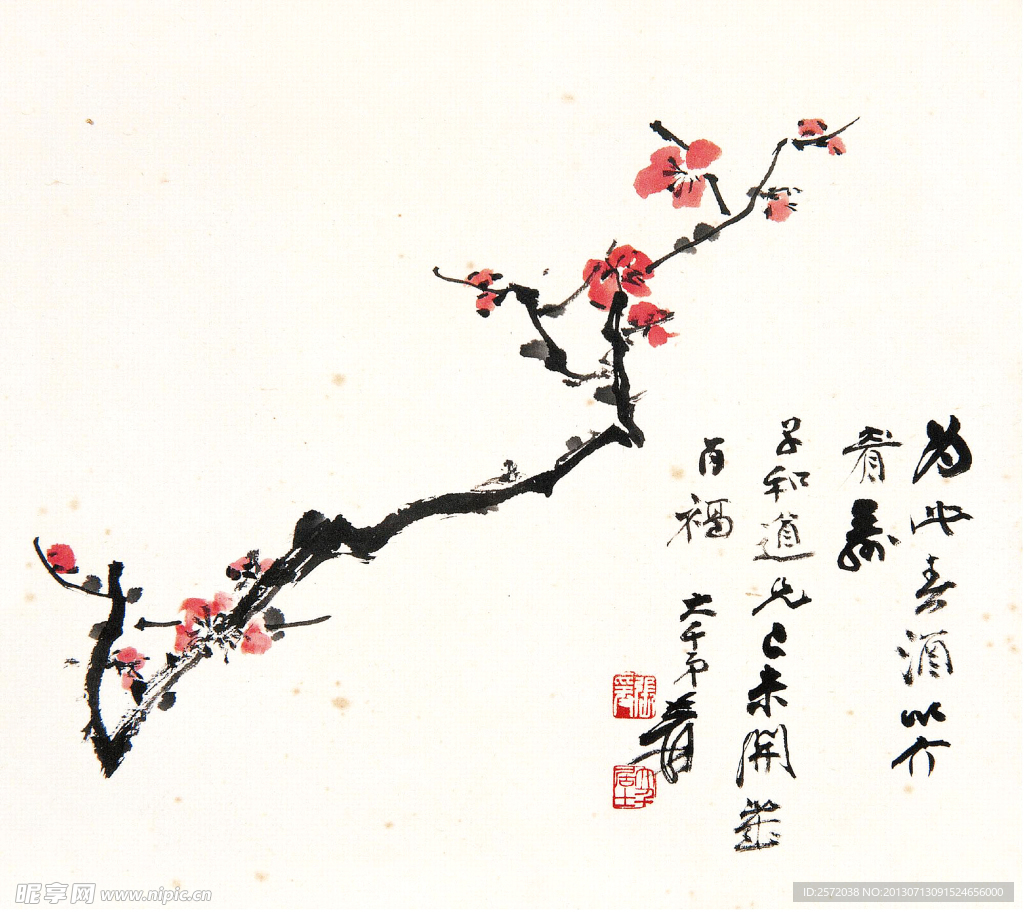 为此春酒以介
眉寿
子和道兄己未开岁
百福
大千弟爰
張爰
大千居士
昵享网 www.nipic.cn
ID:2572038 NO:20130713091524656000